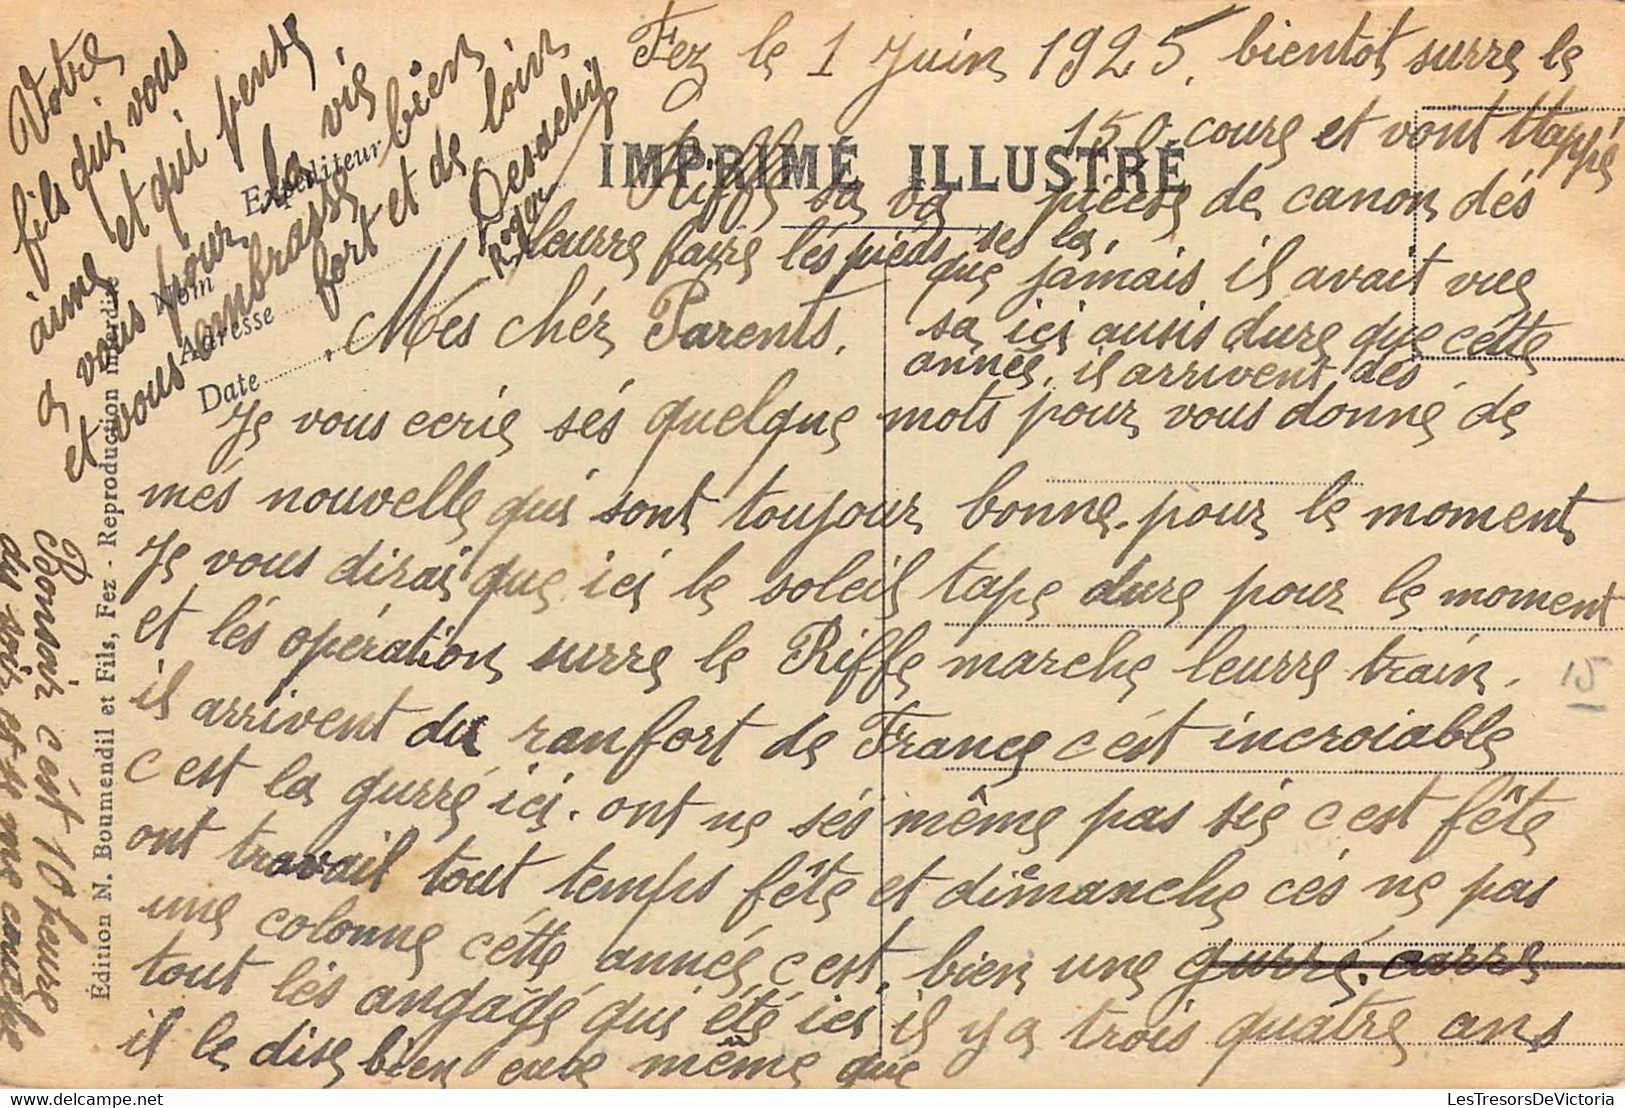 Fez le 1 Juin 1925.
Mes chér Parents.
Je vous ecrie sés quelque mots pour vous donné de
més nouvelle qui sont toujour bonne. pour le moment
Je vous dirai que ici le soleil tape dure pour le moment
et lés opération surre le Riffe marche leurre train.
il arrivent du ranfort de France c'ést incroiable
c est la gurré ici. ont ne sés même pas sie c est fête
ont travail tout temps fête et dimanche cés ne pas
une colonne cétte année c est bien une gurré. carre
tout lés angagé qui été ici il y a trois quatre ans
il le dise bien euse même que
que jamais il avait vue
sa ici ausis dure que cétte
année. il arrivent dés
pièces de canon dés
150 coure et vont ttappé
bientot surre le
Riffe sa va
leurre faire lés pieds ses la.
Votre
fils qui vous
aime et qui pense
a vous pour la vie
et vous ambrasse bien
fort et de loin
Roger
Bonsoir c'ést 10 heure
du soir et je me couche
IMPRIMÉ ILLUSTRÉ
Expéditeur
Nom
Adresse
Date
Édition N. Boumendil et Fils, Fez - Reproduction interdite
15
delcampe.net
LesTresorsDeVictoria